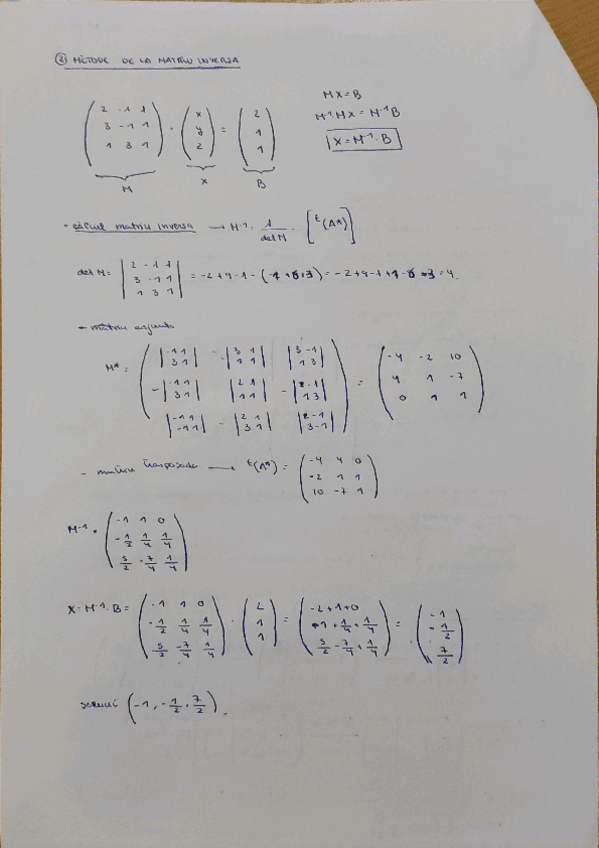 ② MÈTODE DE LA MATRIU INVERSA
( 2 -1 1 ; 3 -1 1 ; 1 3 1 ) · ( x ; y ; z ) = ( 2 ; 1 ; 1 )
M X B
MX = B
M⁻¹MX = M⁻¹B
X = M⁻¹·B
· càlcul matriu inversa → M⁻¹: 1/det M · [ᵗ(A*)]
det M = | 2 -1 1 ; 3 -1 1 ; 1 3 1 | = -2+9-1-(-1+6-3) = -2+9-1+1-6+3 = 4.
- matriu adjunta
M* = ( |-1 1 ; 3 1| -|3 1 ; 1 1| |3 -1 ; 1 3| ; -|-1 1 ; 3 1| |2 1 ; 1 1| -|2 -1 ; 1 3| ; |-1 1 ; -1 1| -|2 1 ; 3 1| |2 -1 ; 3 -1| ) = ( -4 -2 10 ; 4 1 -7 ; 0 1 1 )
- matriu trasposada → ᵗ(A*) = ( -4 4 0 ; -2 1 1 ; 10 -7 1 )
M⁻¹ = ( -1 1 0 ; -1/2 1/4 1/4 ; 5/2 -7/4 1/4 )
X = M⁻¹·B = ( -1 1 0 ; -1/2 1/4 1/4 ; 5/2 -7/4 1/4 ) · ( 2 ; 1 ; 1 ) = ( -2+1+0 ; -1+1/4+1/4 ; 5/2 -7/4+1/4 ) = ( -1 ; -1/2 ; 7/2 )
solució (-1, -1/2, 7/2).